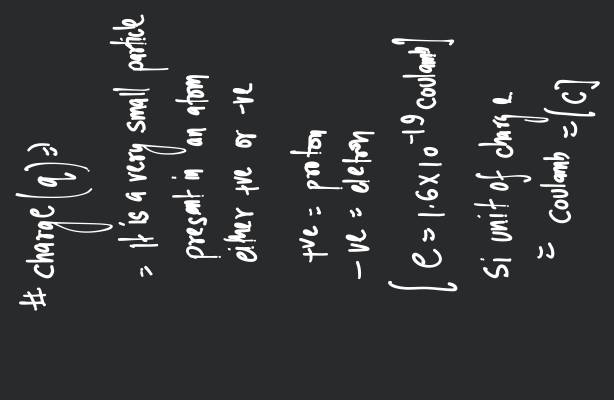 # charge (q) =>
= It is a very small particle
present in an atom
either +ve or -ve
+ve = proton
-ve = eletron
[e = 1.6X10^-19 coulamb]
Si unit of charge
= coulamb = [C]